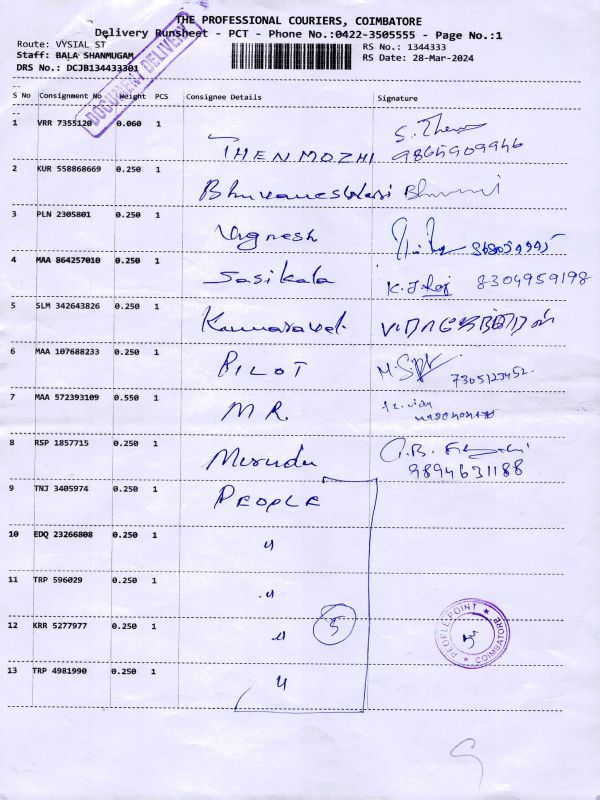 THE PROFESSIONAL COURIERS, COIMBATORE
Delivery Runsheet - PCT - Phone No.:0422-3505555 - Page No.:1
Route: VYSIAL ST
RS No.: 1344333
Staff: BALA SHANMUGAM
RS Date: 28-Mar-2024
DRS No.: DCJB134433301
DOCUMENT DELIVERY
S No Consignment No Weight PCS Consignee Details Signature
1 VRR 7355120 0.060 1 THENMOZHI
2 KUR 558868669 0.250 1 Bhuvaneshwari
3 PLN 2305801 0.250 1 Vignesh
4 MAA 864257010 0.250 1 Sasikala 8304959198
5 SLM 342643826 0.250 1 Kumaravel
6 MAA 107688233 0.250 1 PILOT 7305123452.
7 MAA 572393109 0.550 1 MR.
8 RSP 1857715 0.250 1
9894631188
9 TNJ 3405974 0.250 1 PEOPLE
10 EDQ 23266808 0.250 1 "
11 TRP 596029 0.250 1 "
12 KRR 5277977 0.250 1 " 5
13 TRP 4981990 0.250 1 "
PEOPLE POINT ★ COIMBATORE ★